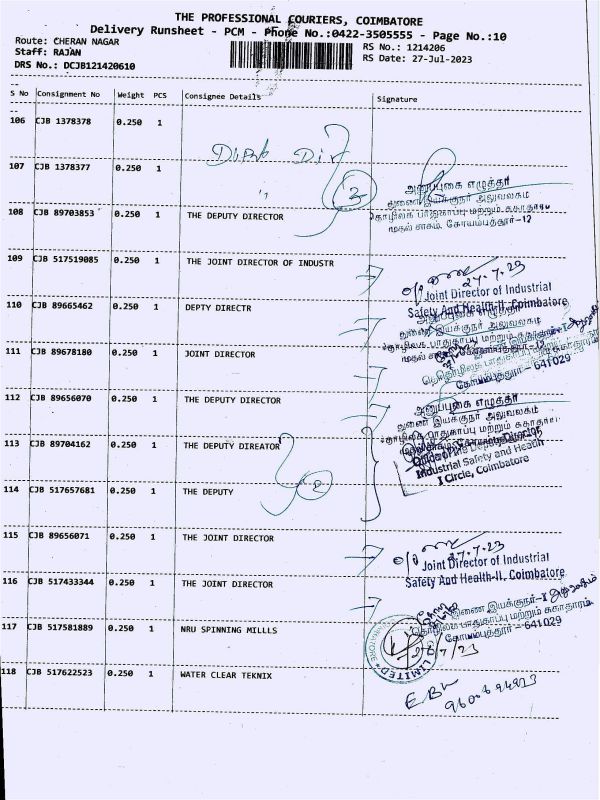 THE PROFESSIONAL COURIERS, COIMBATORE
Delivery Runsheet - PCM - Phone No.:0422-3505555 - Page No.:10
Route: CHERAN NAGAR
RS No.: 1214206
Staff: RAJAN
RS Date: 27-Jul-2023
DRS No.: DCJB121420610
S No Consignment No Weight PCS Consignee Details Signature
106 CJB 1378378 0.250 1
107 CJB 1378377 0.250 1
3
அனுப்புகை எழுத்தர்
துணை இயக்குநர் அலுவலகம்
108 CJB 89703853 0.250 1 THE DEPUTY DIRECTOR
தொழிலக பாதுகாப்பு மற்றும் சுகாதாரம்
முதல் சரகம், கோயம்புத்தூர்-12
109 CJB 517519085 0.250 1 THE JOINT DIRECTOR OF INDUSTR
27.7.23
Joint Director of Industrial
Safety And Health-II, Coimbatore
110 CJB 89665462 0.250 1 DEPTY DIRECTR
அனுப்புகை எழுத்தர்
துணை இயக்குநர் அலுவலகம்
111 CJB 89678180 0.250 1 JOINT DIRECTOR
கோயம்புத்தூர் - 641029
112 CJB 89656070 0.250 1 THE DEPUTY DIRECTOR
அனுப்புகை எழுத்தர்
துணை இயக்குநர் அலுவலகம்
தொழிலக பாதுகாப்பு மற்றும் சுகாதாரம்
113 CJB 89704162 0.250 1 THE DEPUTY DIREATOR
Industrial Safety and Health
I Circle, Coimbatore
114 CJB 517657681 0.250 1 THE DEPUTY
2
115 CJB 89656071 0.250 1 THE JOINT DIRECTOR
27.7.23
Joint Director of Industrial
Safety And Health-II, Coimbatore
116 CJB 517433344 0.250 1 THE JOINT DIRECTOR
இணை இயக்குநர்-I
தொழிலக பாதுகாப்பு மற்றும் சுகாதாரம்
கோயம்புத்தூர் - 641029
117 CJB 517581889 0.250 1 NRU SPINNING MILLLS
LIMITED
118 CJB 517622523 0.250 1 WATER CLEAR TEKNIX